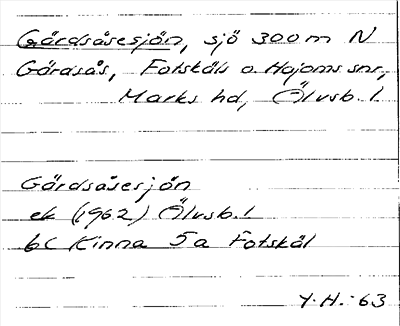 Gårdsåsesjön, sjö 300 m N
Gårdsås, Fotskäls o. Hajoms snr,
Marks hd, Älvsb. l.
Gårdsåsesjön
ek (1962) Älvsb. l
bC Kinna 5a Fotskäl
Y.H.-63